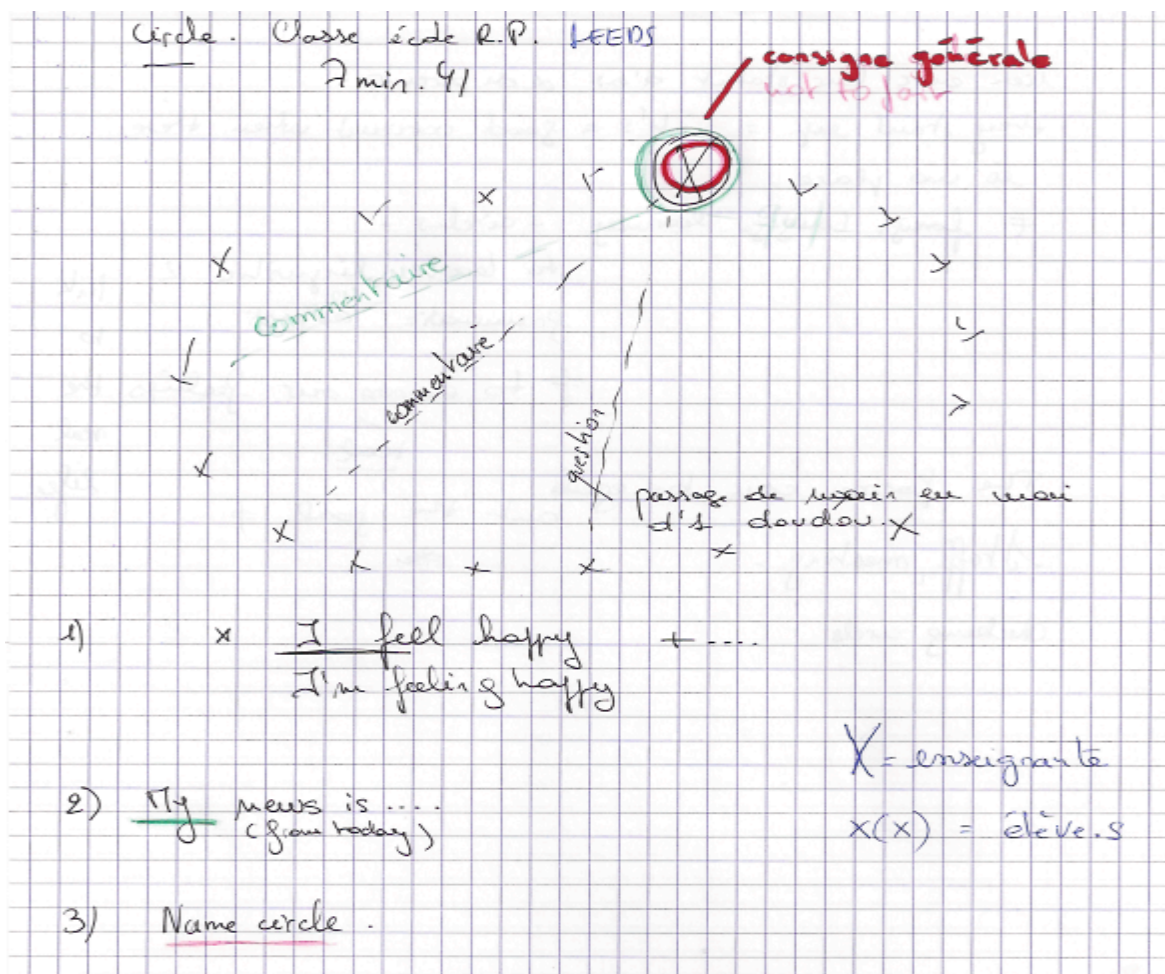 Circle. Classe école R.P. LEEDS
7 min. 41
consigne générale
not to join
commentaire
commentaire
question
passage de main en mai
d'1 doudou.
1) x I feel happy + ....
I'm feeling happy
X = enseignante
2) My news is ....
(from today)
x(x) = élève.s
3) Name circle.